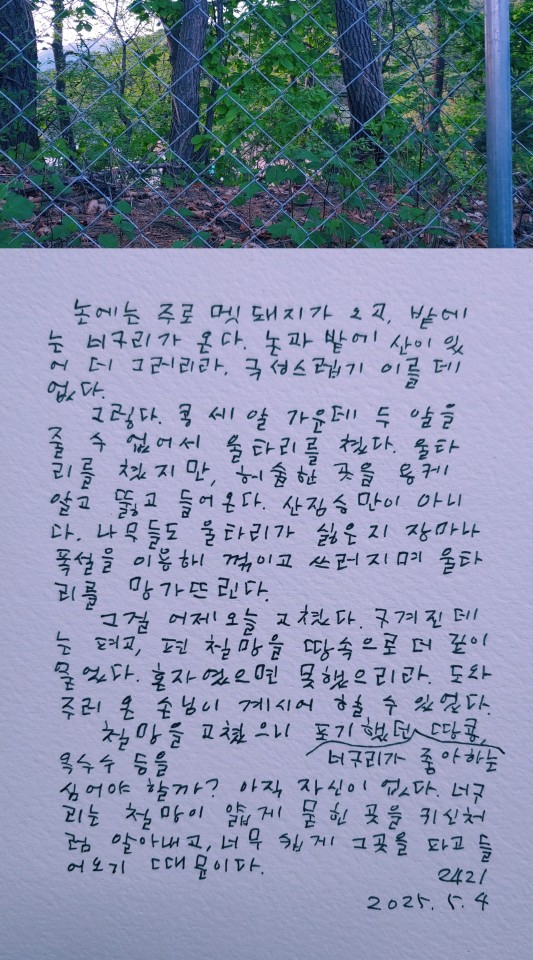 논에는 주로 멧돼지가 오고, 밭에
는 너구리가 온다. 논과 밭에 산이 있
어 더 그러리라. 극성스럽기 이를 데
없다.
그렇다. 콩 세 알 가운데 두 알을
줄 수 없어서 울타리를 쳤다. 울타
리를 쳤지만, 허술한 곳을 용케
알고 뚫고 들어온다. 산짐승만이 아니
다. 나무들도 울타리가 싫은지 장마나
폭설을 이용해 꺾이고 쓰러지며 울타
리를 망가뜨린다.
그걸 어제오늘 고쳤다. 구겨진 데
는 펴고, 편 철망을 땅속으로 더 깊이
묻었다. 혼자였으면 못했으리라. 도와
주러 온 손님이 계시어 할 수 있었다.
철망을 고쳤으니 포기했던 땅콩,
옥수수 등을 너구리가 좋아하는
심어야 할까? 아직 자신이 없다. 너구
리는 철망이 얇게 묻힌 곳을 귀신처
럼 알아내고, 너무 쉽게 그곳을 파고 들
어오기 때문이다.
2421
2025. 5. 4